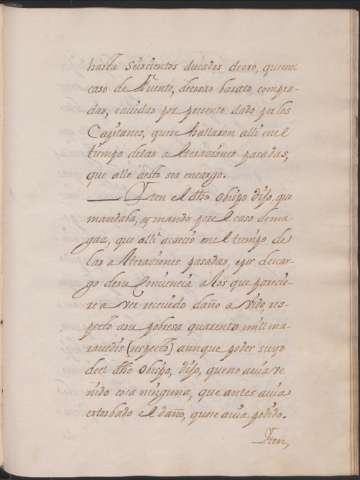 hasta seiscientos ducados de oro, que en
caso de
dar, por presente dado por los
Capitanes, que se hallaron alli en el
tiempo de las alteraciones pasadas,
que allo desto sea encargo.
Iten el dho obispo dijo, que
mandaba, y mando por el caso de ma
que alli acaecio en el tiempo de
las alteraciones pasadas, y por descar
go de su conciencia a los que parecie
re a ver recevido daño a vido res
pecto a su pobreza quarenta mill ma
ravedis (respecto) aunque poder suyo
del dho obispo, dijo, que no avia ve
nido cosa ninguna, que antes avia
estorbado el daño, que se avia podido.
Iten,